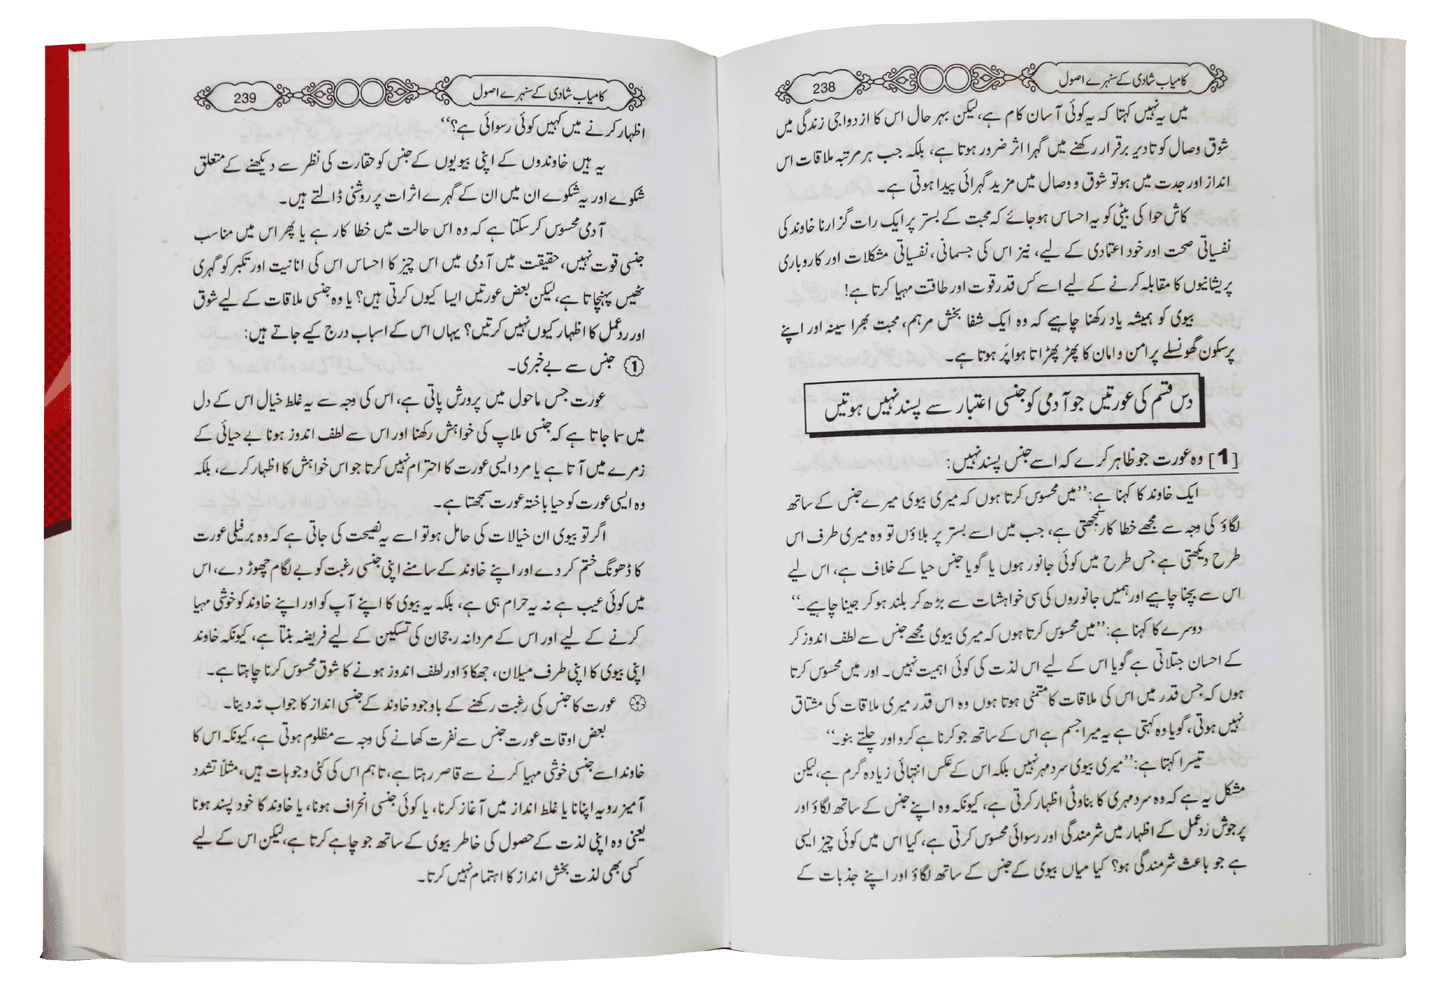 کامیاب شادی کے سنہرے اصول 238
میں یہ نہیں کہتا کہ یہ کوئی آسان کام ہے، لیکن بہر حال اس کا ازدواجی زندگی میں
شوق وصال کو تادیر برقرار رکھنے میں گہرا اثر ضرور ہوتا ہے، بلکہ جب ہر مرتبہ ملاقات اس
انداز اور جدت میں ہو تو شوق و وصال میں مزید گہرائی پیدا ہوتی ہے۔
کاش حوا کی بیٹی کو یہ احساس ہو جائے کہ محبت کے بستر پر ایک رات گزارنا خاوند کی
نفسیاتی صحت اور خود اعتمادی کے لیے، نیز اس کی جسمانی، نفسیاتی مشکلات اور کاروباری
پریشانیوں کا مقابلہ کرنے کے لیے اسے کس قدر قوت اور طاقت مہیا کرتا ہے!
بیوی کو ہمیشہ یاد رکھنا چاہیے کہ وہ ایک شفا بخش مرہم، محبت بھرا سینہ اور اپنے
پرسکون گھونسلے پر امن و امان کا پھڑپھڑاتا ہوا پَر ہوتا ہے۔
دس قسم کی عورتیں جو آدمی کو جنسی اعتبار سے پسند نہیں ہوتیں
[1] وہ عورت جو ظاہر کرے کہ اسے جنس پسند نہیں:
ایک خاوند کا کہنا ہے: ’’میں محسوس کرتا ہوں کہ میری بیوی میرے جنس کے ساتھ
لگاؤ کی وجہ سے مجھے خطا کار سمجھتی ہے، جب میں اسے بستر پر بلاؤں تو وہ میری طرف اس
طرح دیکھتی ہے جس طرح میں کوئی جانور ہوں یا گویا جنس حیا کے خلاف ہے، اس لیے
اس سے بچنا چاہیے اور ہمیں جانوروں کی سی خواہشات سے بڑھ کر بلند ہو کر جینا چاہیے۔‘‘
دوسرے کا کہنا ہے: ’’میں محسوس کرتا ہوں کہ میری بیوی مجھے جنس سے لطف اندوز کر
کے احسان جتلاتی ہے گویا اس کے لیے اس لذت کی کوئی اہمیت نہیں۔ اور میں محسوس کرتا
ہوں کہ جس قدر میں اس کی ملاقات کا متمنی ہوتا ہوں وہ اس قدر میری ملاقات کی مشتاق
نہیں ہوتی، گویا وہ کہتی ہے یہ میرا جسم ہے اس کے ساتھ جو کرنا ہے کرو اور چلتے بنو۔‘‘
تیسرا کہتا ہے: ’’میری بیوی سرد مہر نہیں بلکہ اس کے عکس انتہائی زیادہ گرم ہے، لیکن
مشکل یہ ہے کہ وہ سرد مہری کا بناوٹی اظہار کرتی ہے، کیونکہ وہ اپنے جنس کے ساتھ لگاؤ اور
پرجوش ردّعمل کے اظہار میں شرمندگی اور رسوائی محسوس کرتی ہے، کیا اس میں کوئی چیز ایسی
ہے جو باعث شرمندگی ہو؟ کیا میاں بیوی کے جنس کے ساتھ لگاؤ اور اپنے جذبات کے
کامیاب شادی کے سنہرے اصول 239
اظہار کرنے میں کہیں کوئی رسوائی ہے؟‘‘
یہ ہیں خاوندوں کے اپنی بیویوں کے جنس کو حقارت کی نظر سے دیکھنے کے متعلق
شکوے اور یہ شکوے ان میں ان کے گہرے اثرات پر روشنی ڈالتے ہیں۔
آدمی محسوس کر سکتا ہے کہ وہ اس حالت میں خطا کار ہے یا پھر اس میں مناسب
جنسی قوت نہیں، حقیقت میں آدمی میں اس چیز کا احساس اس کی انانیت اور تکبر کو گہری
ٹھیس پہنچاتا ہے، لیکن بعض عورتیں ایسا کیوں کرتی ہیں؟ یا وہ جنسی ملاقات کے لیے شوق
اور ردعمل کا اظہار کیوں نہیں کرتیں؟ یہاں اس کے اسباب درج کیے جاتے ہیں:
① جنس سے بے خبری۔
عورت جس ماحول میں پرورش پاتی ہے، اس کی وجہ سے یہ غلط خیال اس کے دل
میں سما جاتا ہے کہ جنسی ملاپ کی خواہش رکھنا اور اس سے لطف اندوز ہونا بے حیائی کے
زمرے میں آتا ہے یا مرد ایسی عورت کا احترام نہیں کرتا جو اس خواہش کا اظہار کرے، بلکہ
وہ ایسی عورت کو حیا باختہ عورت سمجھتا ہے۔
اگر تو بیوی ان خیالات کی حامل ہو تو اسے یہ نصیحت کی جاتی ہے کہ وہ برفیلی عورت
کا ڈھونگ ختم کر دے اور اپنے خاوند کے سامنے اپنی جنسی رغبت کو بے لگام چھوڑ دے، اس
میں کوئی عیب ہے نہ یہ حرام ہی ہے، بلکہ یہ بیوی کا اپنے آپ کو اور اپنے خاوند کو خوشی مہیا
کرنے کے لیے اور اس کے مردانہ رجحان کی تسکین کے لیے فریضہ بنتا ہے، کیونکہ خاوند
اپنی بیوی کا اپنی طرف میلان، جھکاؤ اور لطف اندوز ہونے کا شوق محسوس کرنا چاہتا ہے۔
عورت کا جنس کی رغبت رکھنے کے باوجود خاوند کے جنسی انداز کا جواب نہ دینا۔
بعض اوقات عورت جنس سے نفرت کھانے کی وجہ سے مظلوم ہوتی ہے، کیونکہ اس کا
خاوند اسے جنسی خوشی مہیا کرنے سے قاصر رہتا ہے، تاہم اس کی کئی وجوہات ہیں، مثلاً تشدد
آمیز رویہ اپنانا یا غلط انداز میں آغاز کرنا، یا کوئی جنسی انحراف ہونا، یا خاوند کا خود پسند ہونا
یعنی وہ اپنی لذت کے حصول کی خاطر بیوی کے ساتھ جو چاہے کرتا ہے، لیکن اس کے لیے
کسی بھی لذت بخش انداز کا اہتمام نہیں کرتا۔